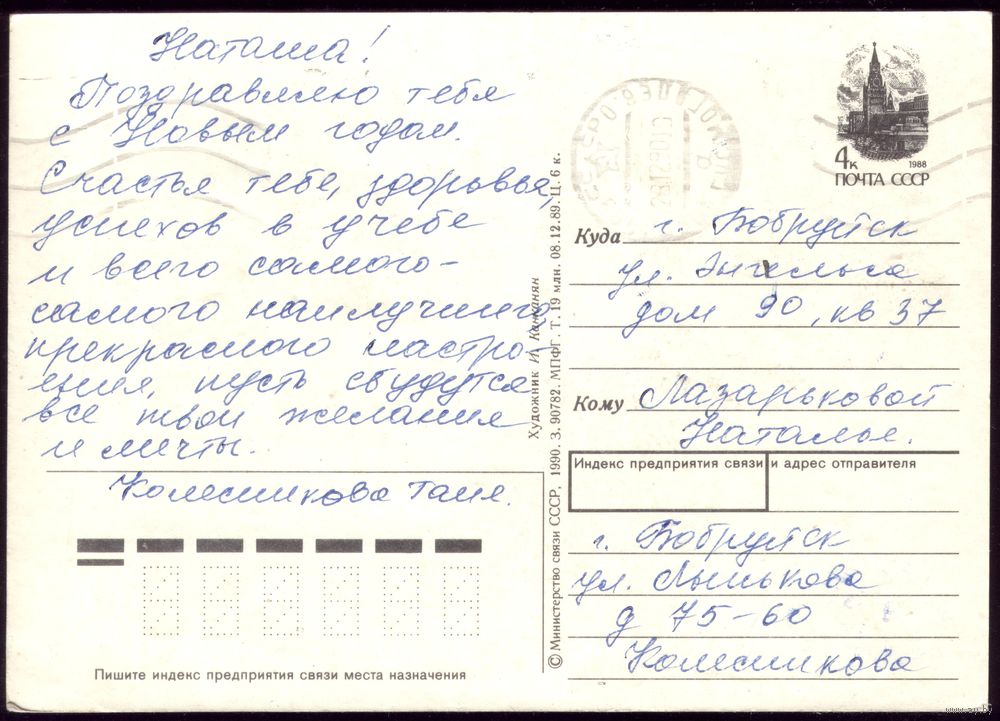 Наташа!
Поздравляю тебя
с Новым годом.
Счастья тебе, здоровья,
успехов в учебе
и всего самого-
самого наилучшего
прекрасного настро-
ения, пусть сбудутся
все твои желания
и мечты.
Колесникова Таня.
Пишите индекс предприятия связи места назначения
© Министерство связи СССР, 1990. З. 90782. МПФГ. Т. 19 млн. 08.12.89. Ц. 6 к.
Художник И.
4к
1988
ПОЧТА СССР
Куда г. Бобруйск
ул. Энгельса
дом 90, кв 37
Кому Лазарьковой
Наталье.
Индекс предприятия связи и адрес отправителя
г. Бобруйск
ул. Лынькова
д 75-60
Колесникова